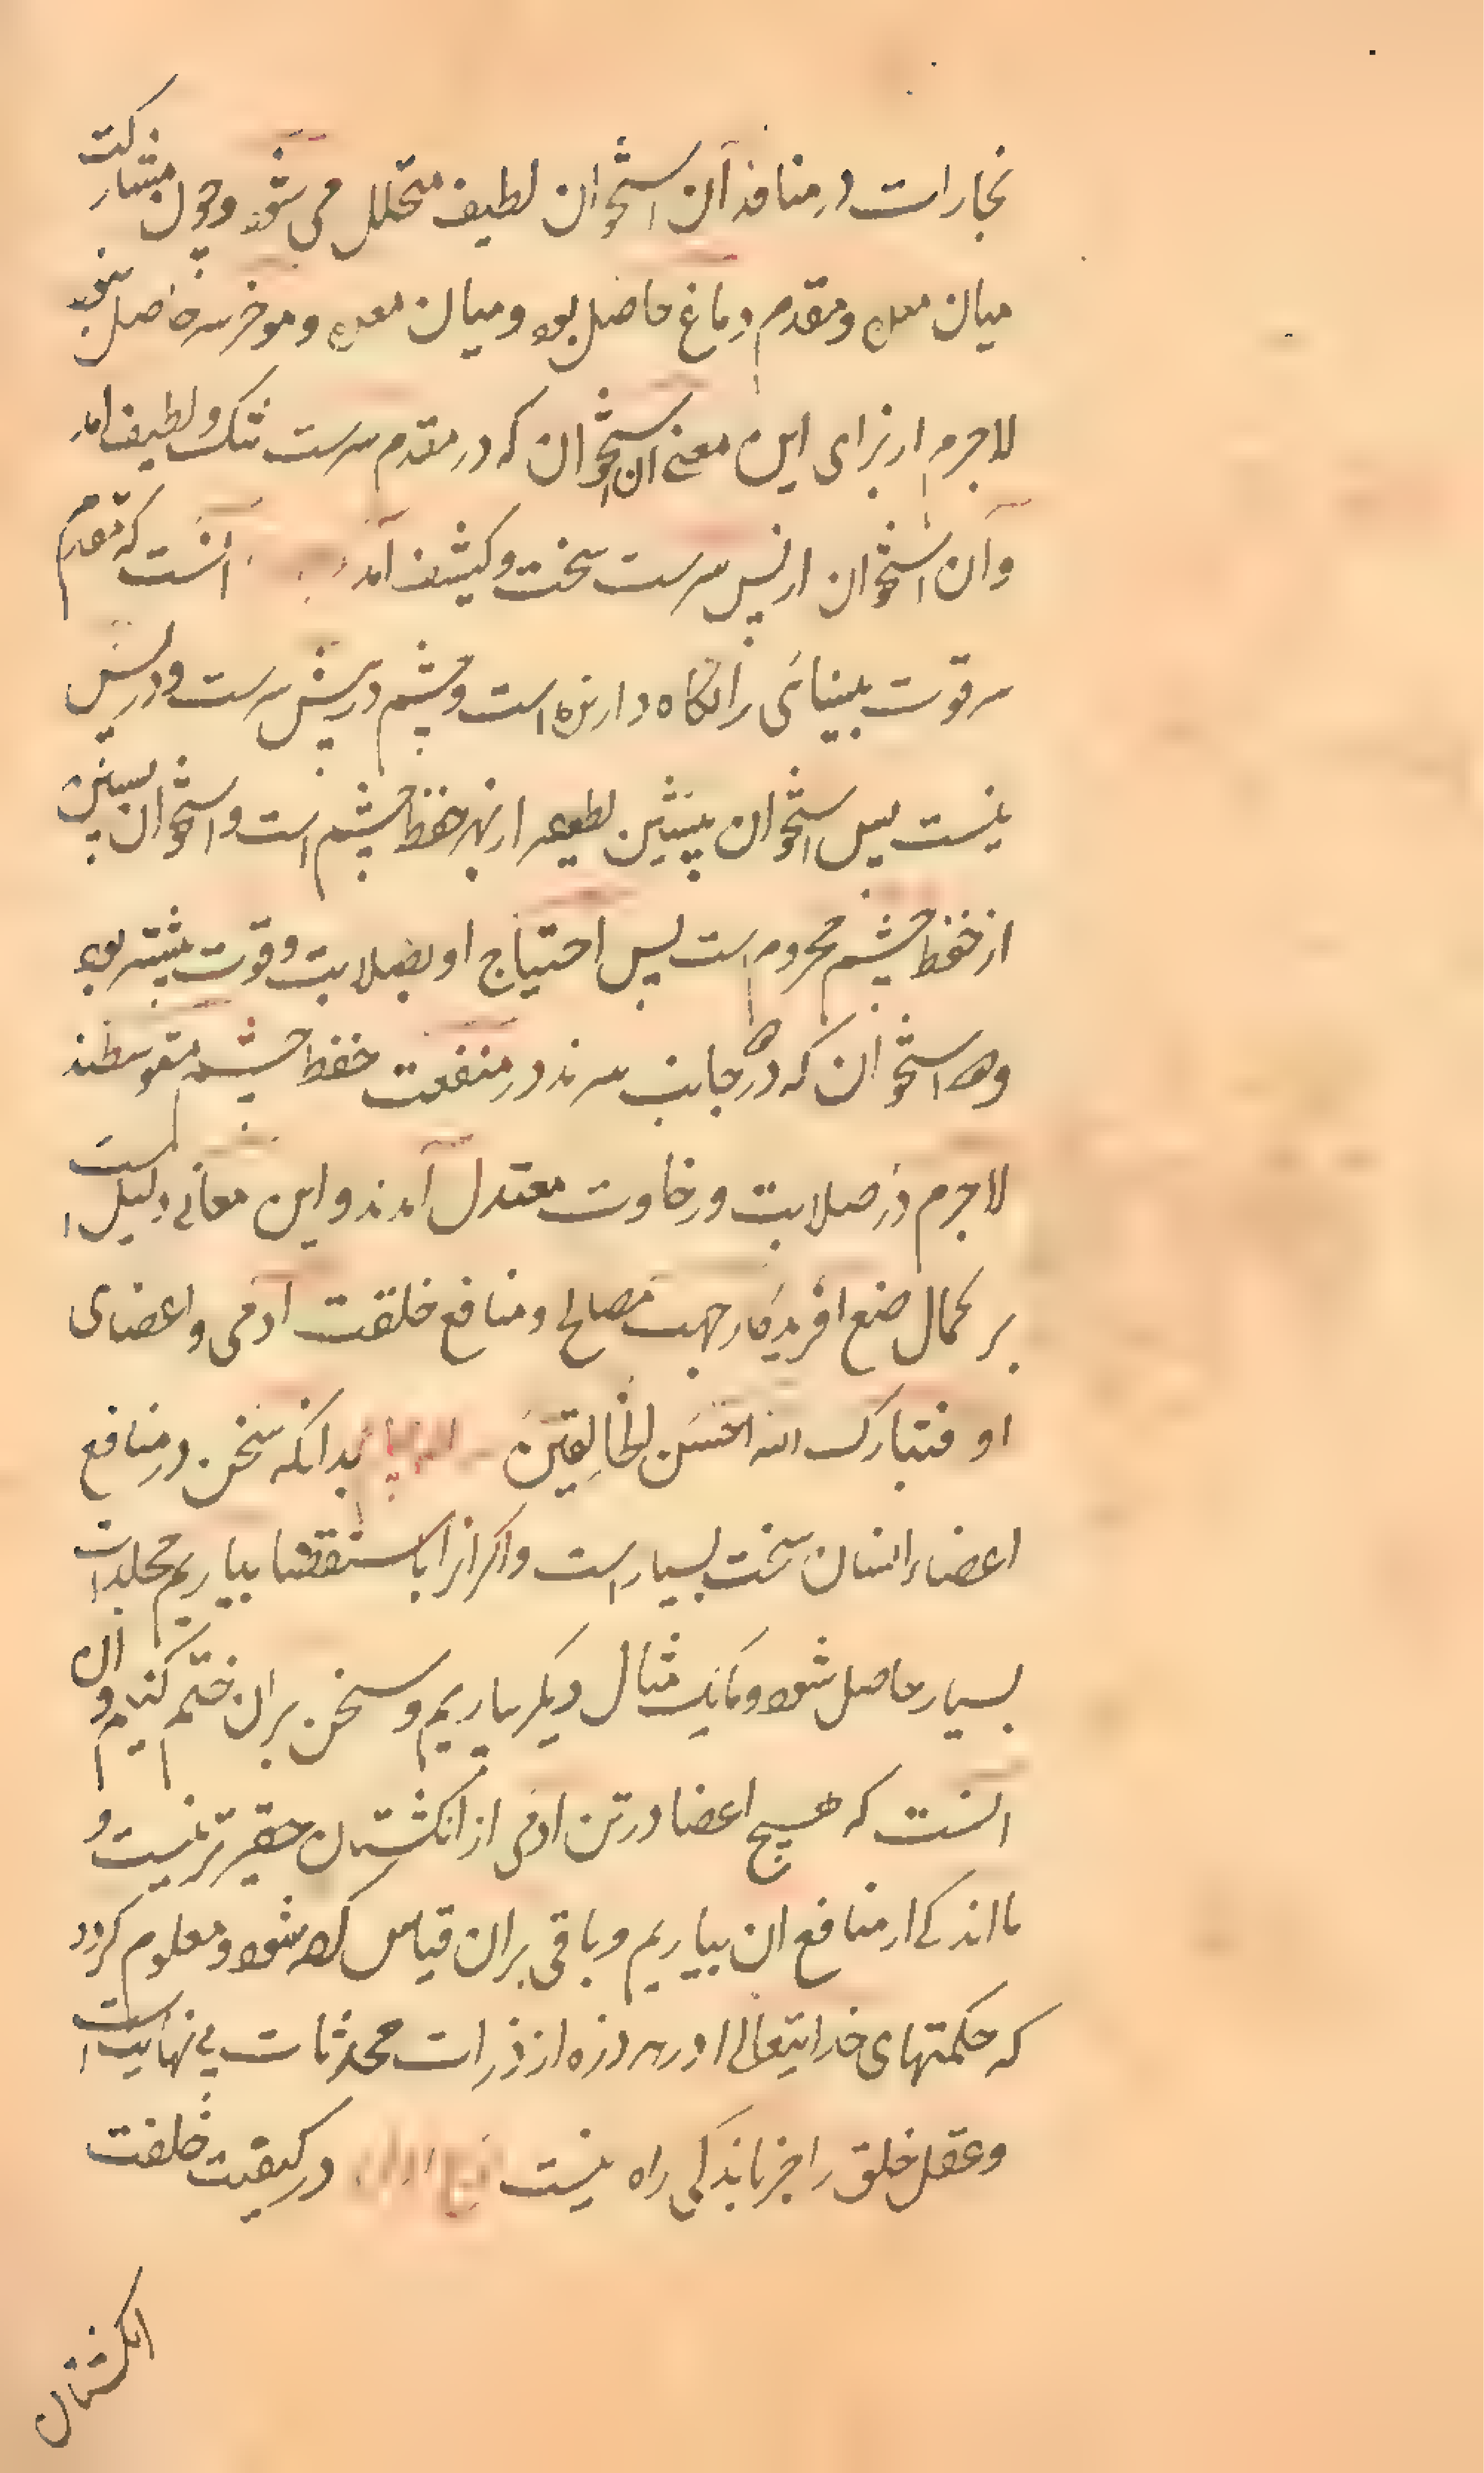 بخارات در منافذ آن استخوان لطیف متحلل می شود و چون مشارکت
میان معده و مقدم دماغ حاصل بود و میان معده و موخر سر حاصل نبود
لاجرم از برای این معنی ان استخوان که در مقدم سرست تنک و لطیف امد
و آن استخوان از پس سرست سخت و کثیف آمد انست که مقدم
سر قوت بینائی را نگاه دارنده است و چشم در پیش سرست و در پس
نیست پس استخوان پیشین از بهر حفظ چشم است و استخوان پسین
از حفظ چشم محروم است پس احتیاج او بصلابت و قوت بیشتر بود
و هر استخوان که در جانب سرند در منفعت حفظ چشم متوسطند
لاجرم در صلابت و رخاوت معتدل آمدند و این معانی دلیل است
بر کمال صنع افریدکار جهت مصالح و منافع خلقت ادمی و اعضای
او فتبارک الله احسن الخالقین بدانکه سخن در منافع
اعضاء انسان سخت بسیار است و اکر انرا باستقصا بیاریم مجلدات
بسیار حاصل شود و ما یک مثال دیکر بیاریم و سخن بران ختم کنیم و ان
انست که هیچ اعضا در تن ادمی از انکشتان حقیرتر نیست و
ما اندکی از منافع ان بیاریم و باقی بران قیاس کرده شود و معلوم کردد
که حکمتهای خدایتعالی در هر ذره از ذرات محدثات بی نهایت است
و عقل خلق را جز باندکی راه نیست در کیفیت خلقت
انکشتان